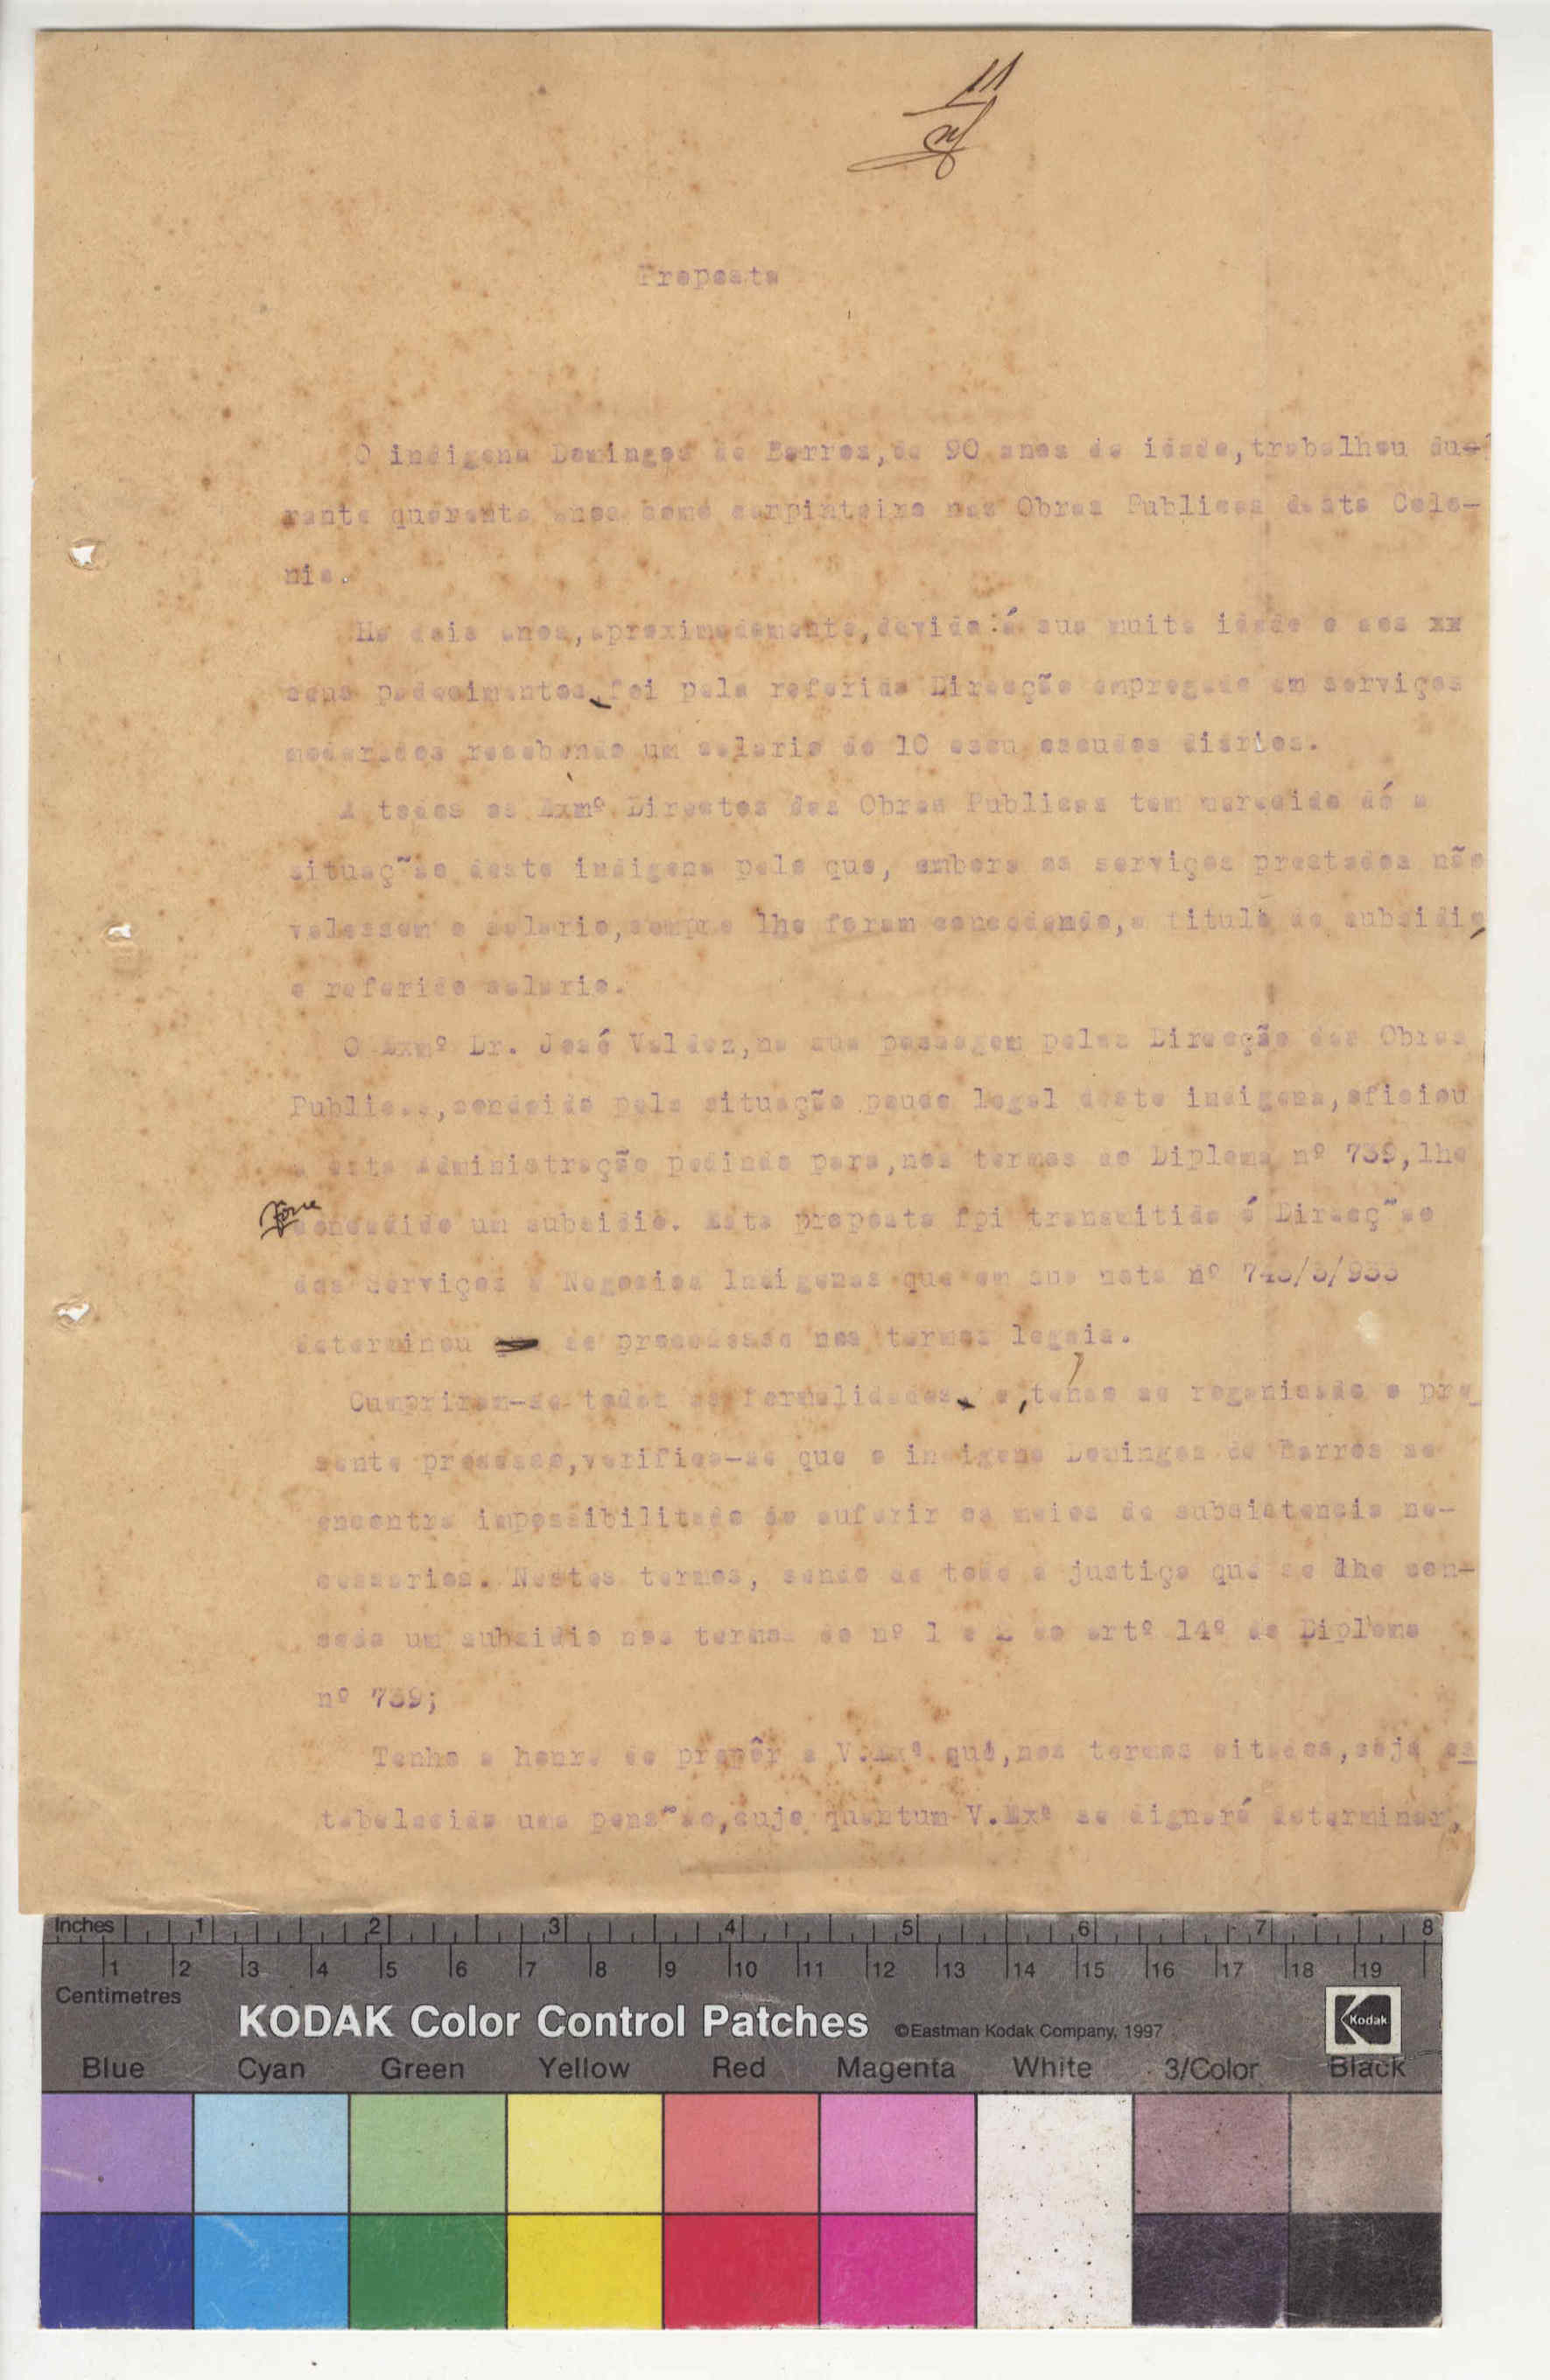 11
Proposta
O indigena Domingos de Barros,de 90 anos de idade,trabalhou du-
rante quarenta anos como carpinteiro nas Obras Publicas desta Colo-
nia.
Ha dois anos,aproximadamente,devido á sua muita idade e aos xx
seus padecimentos,foi pela referida Direcção empregado em serviços
moderados recebendo um salario de 10 escu escudos diarios.
A todos os Exmº Directos das Obras Publicas tem merecido dó a
situaç~ao deste indigena pelo que, embora os serviços prestados não
valessem o salario,sempre lhe foram concedendo,a titulo de subsidio,
o referido salario.
O Exmº Dr. José Valdez,na sua passagem pelas Direcção das Obras
Publicas,condoido pela situação pouco legal deste indigena,oficiou
a esta Administração pedindo para,nos termos do Diploma nº 739,lhe
fôsse concedido um subsidio. Esta proposta foi transmitida é Direcç~ao
dos Serviços e Negocios Indigenas que em sua nota nº 743/5/933
determinou se processasse nos termos legais.
Cumpriram-se todas as formalidades e,tendo se roganisado o pre_
sente processo,verifica-se que o indigena Domingos de Barros se
encontra impossibilitado de auferir os meios de subsistencia ne-
cessarios. Nestes termos, sendo de toda a justiça que se lhe con-
ceda um subsidio nos termos do nº 1 e 2 do artº 14º do Diploma
nº 739;
Tenho a honra de propôr a V.Exª que,nos termos citados,seja es
tabelecida uma pens~ao,cujo quantum V.Exª se dignará determinar,
Inches 1 2 3 4 5 6 7 8
1 2 3 4 5 6 7 8 9 10 11 12 13 14 15 16 17 18 19
Centimetres
KODAK Color Control Patches ©Eastman Kodak Company, 1997 Kodak
Blue Cyan Green Yellow Red Magenta White 3/Color Black